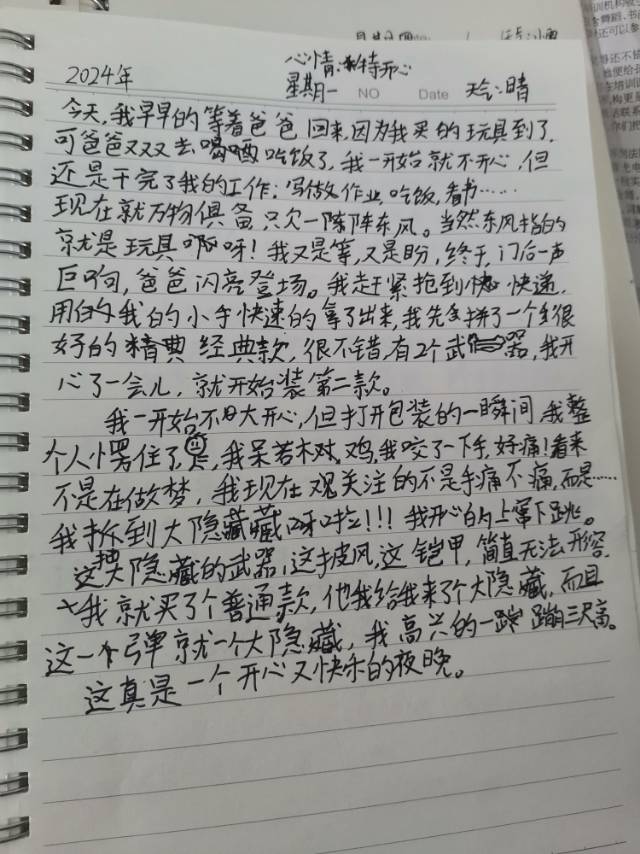 心情:特开心
2024年 星期一 NO Date 天气:晴
今天,我早早的等着爸爸回来,因为我买的玩具到了,
可爸爸又又又去喝酒吃饭了,我一开始就不开心,但
还是干完了我的工作:写做作业,吃饭,看书……
现在就万物俱备只欠一陈阵东风。当然东风指的
就是玩具啊呀!我又是等,又是盼,终于,门后一声
巨响,爸爸闪亮登场。我赶紧抢到快快递,
用的我的小手快速的拿了出来,我先拼了一个很
好的精典经典款,很不错,有2个武器,我开
心了一会儿,就开始装第二款。
我一开始不大开心,但打开包装的一瞬间,我整
个人愣住了,我呆若木对鸡,我咬了一下手,好痛!看来
不是在做梦,我现在观关注的不是手痛不痛,而是……
我拆到大隐藏藏呀啦!!!我开心的上窜下跳。
这把大隐藏的武器,这披风,这铠甲,简直无法形容
我就买了个普通款,他我给我来了个大隐藏,而且
这一个弹就一个大隐藏,我高兴的一蹦蹦三尺高。
这真是一个开心又快乐的夜晚。